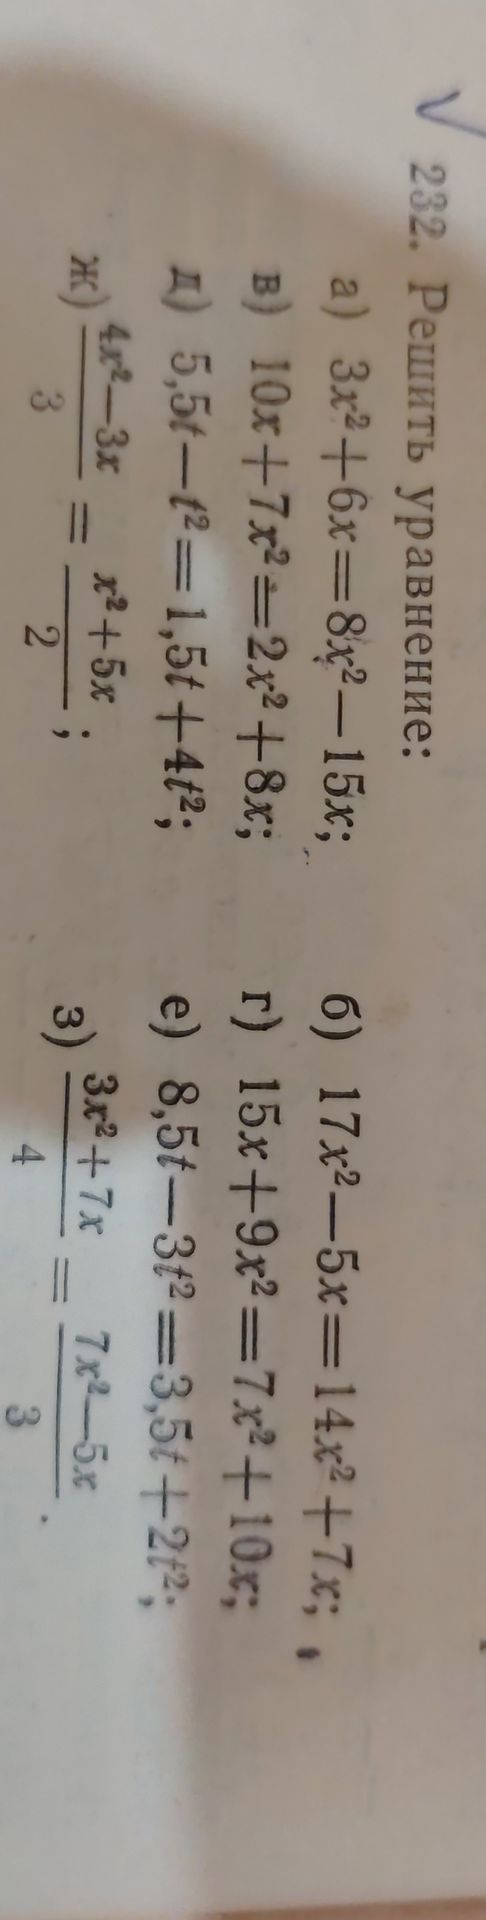 232. Решить уравнение:
а) 3x²+6x=8x²−15x; б) 17x²−5x=14x²+7x;
в) 10x+7x²=2x²+8x; г) 15x+9x²=7x²+10x;
д) 5,5t−t²=1,5t+4t²; е) 8,5t−3t²=3,5t+2t²;
ж) (4x²−3x)/3 = (x²+5x)/2; з) (3x²+7x)/4 = (7x²−5x)/3.